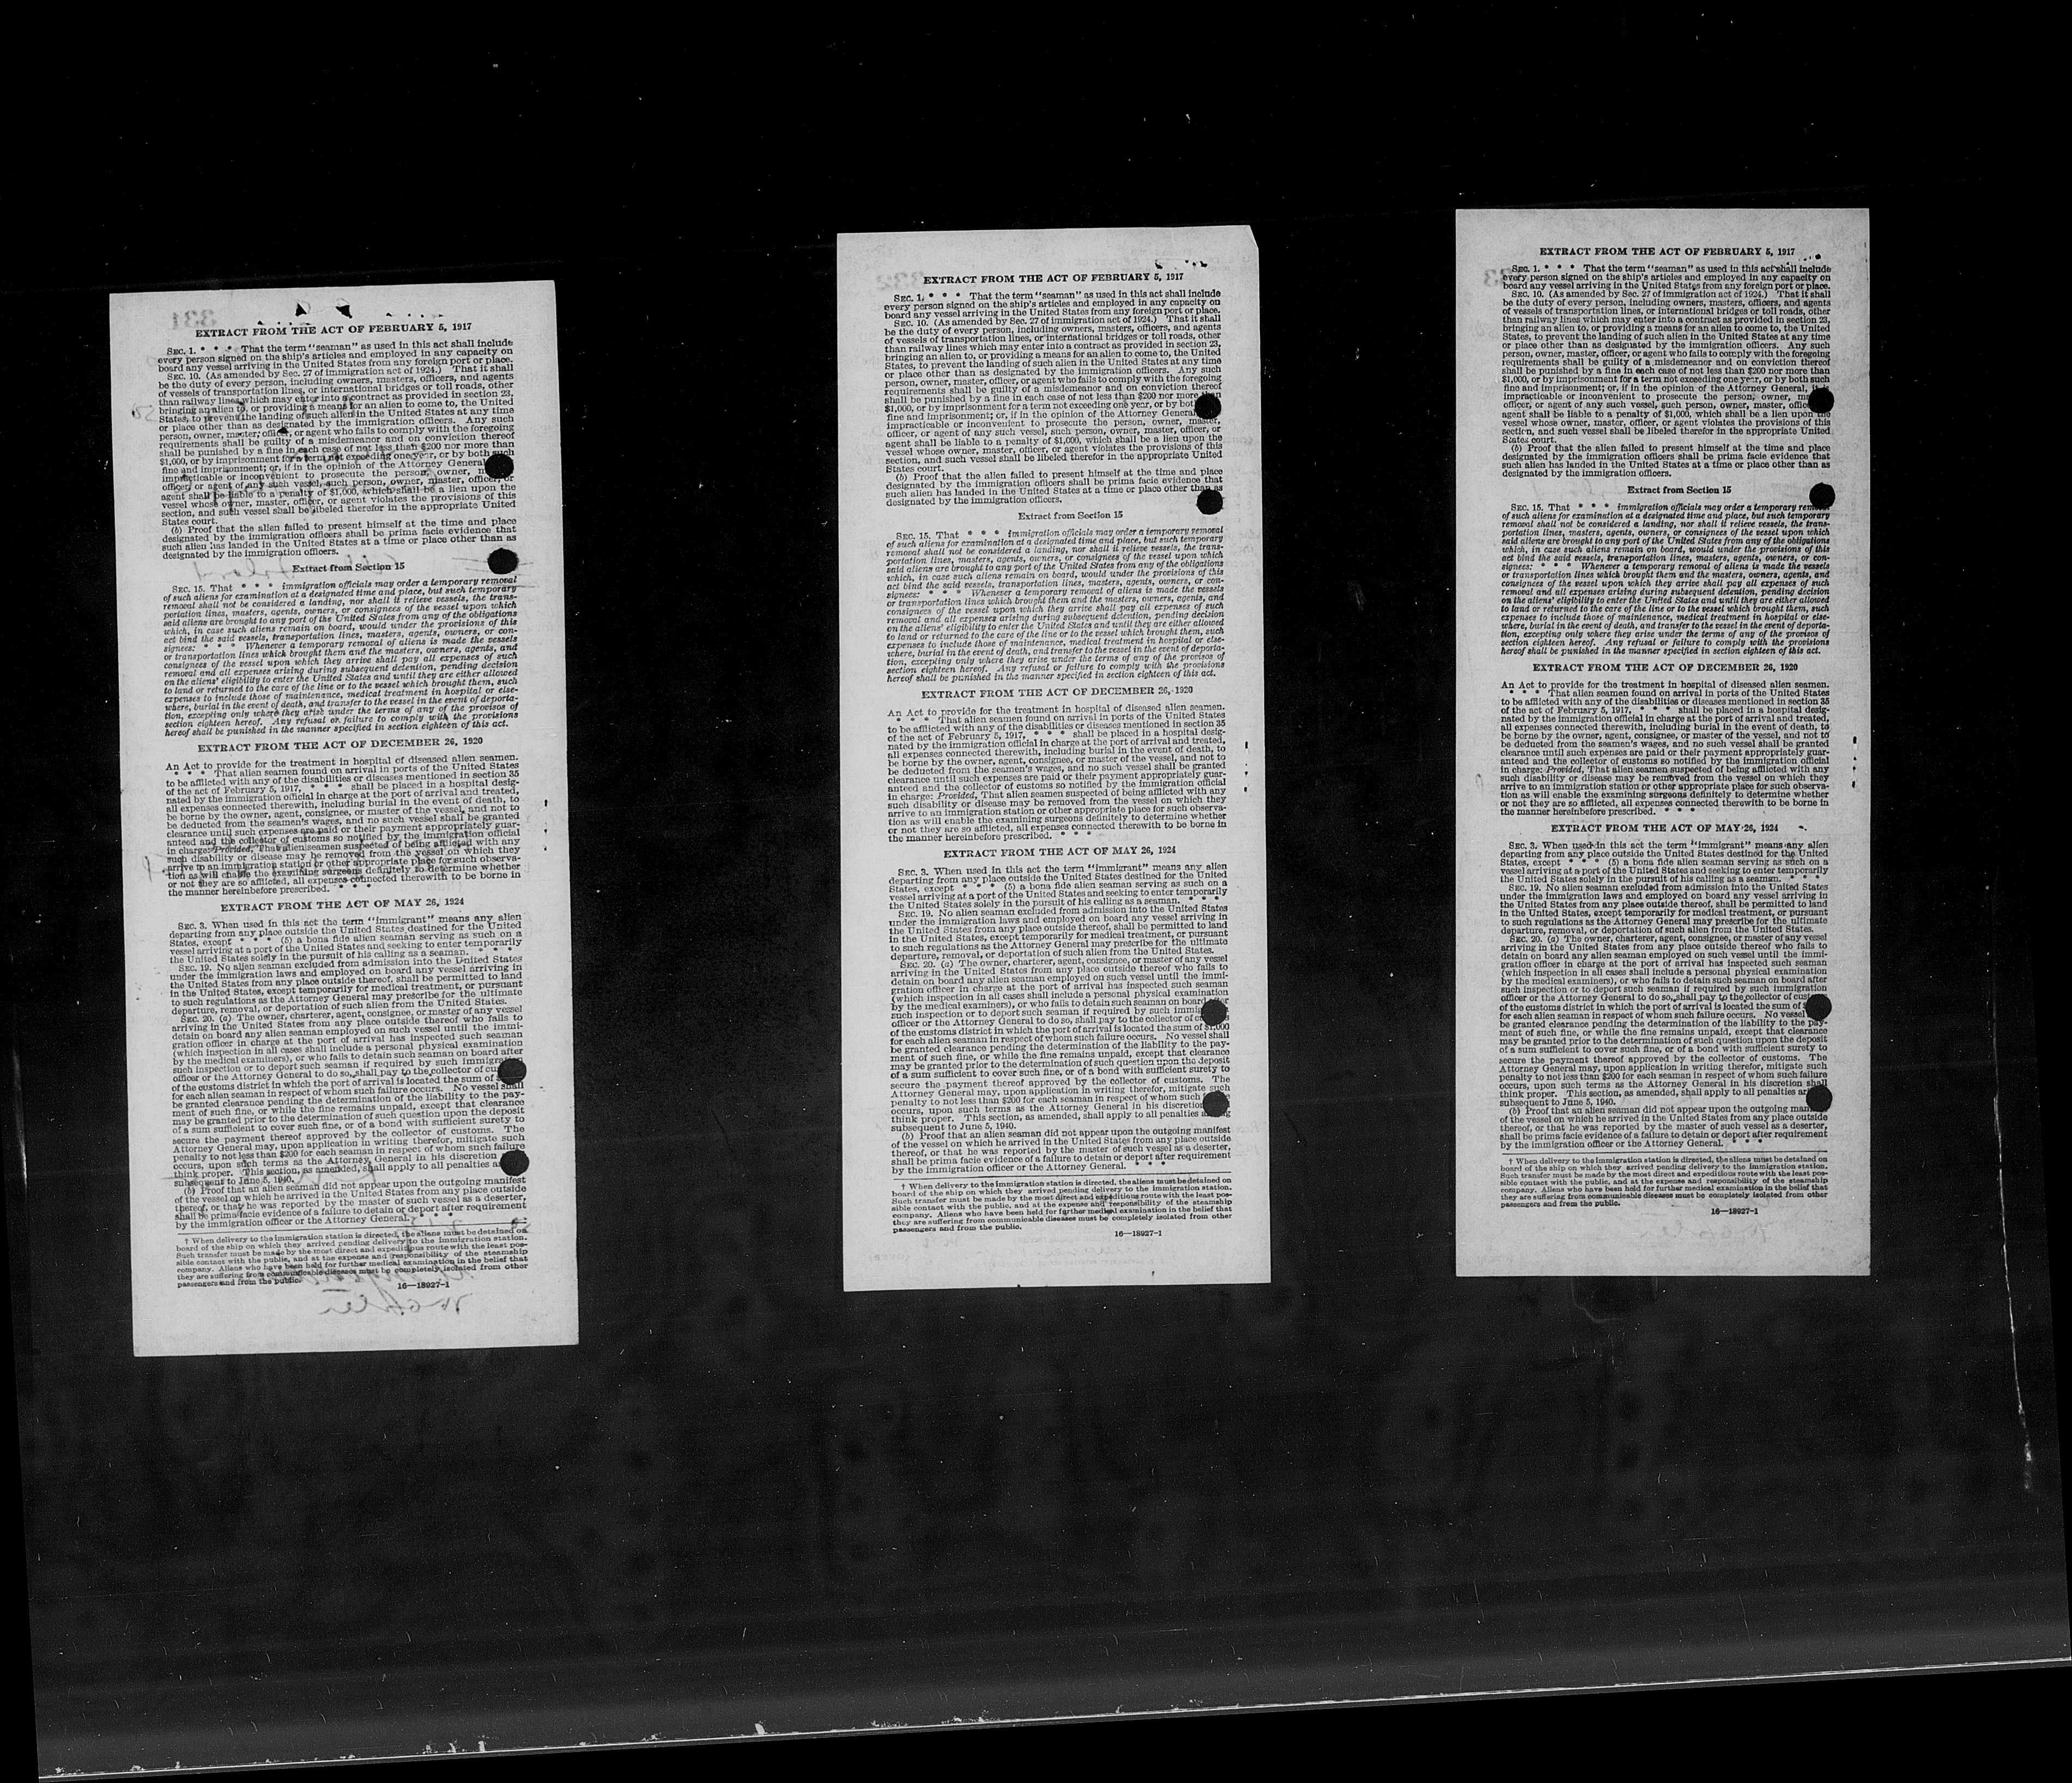 EXTRACT FROM THE ACT OF FEBRUARY 5, 1917
SEC. 1. * * * That the term "seaman" as used in this act shall include
every person signed on the ship's articles and employed in any capacity on
board any vessel arriving in the United States from any foreign port or place.
SEC. 10. (As amended by Sec. 27 of immigration act of 1924.) That it shall
be the duty of every person, including owners, masters, officers, and agents
of vessels of transportation lines, or international bridges or toll roads, other
than railway lines which may enter into a contract as provided in section 23,
bringing an alien to, or providing a means for an alien to come, to the United
States, to prevent the landing of such alien in the United States at any time
or place other than as designated by the immigration officers. Any such
person, owner, master, officer, or agent who fails to comply with the foregoing
requirements shall be guilty of a misdemeanor and on conviction thereof
shall be punished by a fine in each case of not less than $200 nor more than
$1,000, or by imprisonment for a term not exceeding one year, or by both such
fine and imprisonment; or, if in the opinion of the Attorney General
impracticable or inconvenient to prosecute the person, owner,
officer, or agent of any such vessel, such person, owner, master, officer, or
agent shall be liable to a penalty of $1,000, which shall be a lien upon the
vessel whose owner, master, officer, or agent violates the provisions of this
section, and such vessel shall be libeled therefor in the appropriate United
States court.
(b) Proof that the alien failed to present himself at the time and place
designated by the immigration officers shall be prima facie evidence that
such alien has landed in the United States at a time or place other than as
designated by the immigration officers.
Extract from Section 15
SEC. 15. That * * * immigration officials may order a temporary removal
of such aliens for examination at a designated time and place, but such temporary
removal shall not be considered a landing, nor shall it relieve vessels, the trans-
portation lines, masters, agents, owners, or consignees of the vessel upon which
said aliens are brought to any port of the United States from any of the obligations
which, in case such aliens remain on board, would under the provisions of this
act bind the said vessels, transportation lines, masters, agents, owners, or con-
signees: * * * Whenever a temporary removal of aliens is made the vessels
or transportation lines which brought them and the masters, owners, agents, and
consignees of the vessel upon which they arrive shall pay all expenses of such
removal and all expenses arising during subsequent detention, pending decision
on the aliens' eligibility to enter the United States and until they are either allowed
to land or returned to the care of the line or to the vessel which brought them, such
expenses to include those of maintenance, medical treatment in hospital or else-
where, burial in the event of death, and transfer to the vessel in the event of deporta-
tion, excepting only where they arise under the terms of any of the provisos of
section eighteen hereof. Any refusal or failure to comply with the provisions
hereof shall be punished in the manner specified in section eighteen of this act.
EXTRACT FROM THE ACT OF DECEMBER 26, 1920
An Act to provide for the treatment in hospital of diseased alien seamen.
* * * That alien seamen found on arrival in ports of the United States
to be afflicted with any of the disabilities or diseases mentioned in section 35
of the act of February 5, 1917, * * * shall be placed in a hospital desig-
nated by the immigration official in charge at the port of arrival and treated,
all expenses connected therewith, including burial in the event of death, to
be borne by the owner, agent, consignee, or master of the vessel, and not to
be deducted from the seamen's wages, and no such vessel shall be granted
clearance until such expenses are paid or their payment appropriately guar-
anteed and the collector of customs so notified by the immigration official
in charge: Provided, That alien seamen suspected of being afflicted with any
such disability or disease may be removed from the vessel on which they
arrive to an immigration station or other appropriate place for such observa-
tion as will enable the examining surgeons definitely to determine whether
or not they are so afflicted, all expenses connected therewith to be borne in
the manner hereinbefore prescribed. * * *
EXTRACT FROM THE ACT OF MAY 26, 1924
SEC. 3. When used in this act the term "immigrant" means any alien
departing from any place outside the United States destined for the United
States, except * * * (5) a bona fide alien seaman serving as such on a
vessel arriving at a port of the United States and seeking to enter temporarily
the United States solely in the pursuit of his calling as a seaman. * * *
SEC. 19. No alien seaman excluded from admission into the United States
under the immigration laws and employed on board any vessel arriving in
the United States from any place outside thereof, shall be permitted to land
in the United States, except temporarily for medical treatment, or pursuant
to such regulations as the Attorney General may prescribe for the ultimate
departure, removal, or deportation of such alien from the United States.
SEC. 20. (a) The owner, charterer, agent, consignee, or master of any vessel
arriving in the United States from any place outside thereof who fails to
detain on board any alien seaman employed on such vessel until the immi-
gration officer in charge at the port of arrival has inspected such seaman
(which inspection in all cases shall include a personal physical examination
by the medical examiners), or who fails to detain such seaman on board after
such inspection or to deport such seaman if required by such immigration
officer or the Attorney General to do so, shall pay to the collector of
of the customs district in which the port of arrival is located the sum of
for each alien seaman in respect of whom such failure occurs. No vessel shall
be granted clearance pending the determination of the liability to the pay-
ment of such fine, or while the fine remains unpaid, except that clearance
may be granted prior to the determination of such question upon the deposit
of a sum sufficient to cover such fine, or of a bond with sufficient surety to
secure the payment thereof approved by the collector of customs. The
Attorney General may, upon application in writing therefor, mitigate such
penalty to not less than $200 for each seaman in respect of whom such failure
occurs, upon such terms as the Attorney General in his discretion
think proper. This section, as amended, shall apply to all penalties
subsequent to June 5, 1940.
(b) Proof that an alien seaman did not appear upon the outgoing manifest
of the vessel on which he arrived in the United States from any place outside
thereof, or that he was reported by the master of such vessel as a deserter,
shall be prima facie evidence of a failure to detain or deport after requirement
by the immigration officer or the Attorney General. * * *
† When delivery to the immigration station is directed, the aliens must be detained on
board of the ship on which they arrived pending delivery to the immigration station.
Such transfer must be made by the most direct and expeditious route with the least pos-
sible contact with the public, and at the expense and responsibility of the steamship
company. Aliens who have been held for further medical examination in the belief that
they are suffering from communicable diseases must be completely isolated from other
passengers and from the public.
16—18927-1
EXTRACT FROM THE ACT OF FEBRUARY 5, 1917
SEC. 1. * * * That the term "seaman" as used in this act shall include
every person signed on the ship's articles and employed in any capacity on
board any vessel arriving in the United States from any foreign port or place.
SEC. 10. (As amended by Sec. 27 of immigration act of 1924.) That it shall
be the duty of every person, including owners, masters, officers, and agents
of vessels of transportation lines, or international bridges or toll roads, other
than railway lines which may enter into a contract as provided in section 23,
bringing an alien to, or providing a means for an alien to come, to the United
States, to prevent the landing of such alien in the United States at any time
or place other than as designated by the immigration officers. Any such
person, owner, master, officer, or agent who fails to comply with the foregoing
requirements shall be guilty of a misdemeanor and on conviction thereof
shall be punished by a fine in each case of not less than $200 nor more than
$1,000, or by imprisonment for a term not exceeding one year, or by both
fine and imprisonment; or, if in the opinion of the Attorney General
impracticable or inconvenient to prosecute the person, owner, master,
officer, or agent of any such vessel, such person, owner, master, officer, or
agent shall be liable to a penalty of $1,000, which shall be a lien upon the
vessel whose owner, master, officer, or agent violates the provisions of this
section, and such vessel shall be libeled therefor in the appropriate United
States court.
(b) Proof that the alien failed to present himself at the time and place
designated by the immigration officers shall be prima facie evidence that
such alien has landed in the United States at a time or place other than as
designated by the immigration officers.
Extract from Section 15
SEC. 15. That * * * immigration officials may order a temporary removal
of such aliens for examination at a designated time and place, but such temporary
removal shall not be considered a landing, nor shall it relieve vessels, the trans-
portation lines, masters, agents, owners, or consignees of the vessel upon which
said aliens are brought to any port of the United States from any of the obligations
which, in case such aliens remain on board, would under the provisions of this
act bind the said vessels, transportation lines, masters, agents, owners, or con-
signees: * * * Whenever a temporary removal of aliens is made the vessels
or transportation lines which brought them and the masters, owners, agents, and
consignees of the vessel upon which they arrive shall pay all expenses of such
removal and all expenses arising during subsequent detention, pending decision
on the aliens' eligibility to enter the United States and until they are either allowed
to land or returned to the care of the line or to the vessel which brought them, such
expenses to include those of maintenance, medical treatment in hospital or else-
where, burial in the event of death, and transfer to the vessel in the event of deporta-
tion, excepting only where they arise under the terms of any of the provisos of
section eighteen hereof. Any refusal or failure to comply with the provisions
hereof shall be punished in the manner specified in section eighteen of this act.
EXTRACT FROM THE ACT OF DECEMBER 26, 1920
An Act to provide for the treatment in hospital of diseased alien seamen.
* * * That alien seamen found on arrival in ports of the United States
to be afflicted with any of the disabilities or diseases mentioned in section 35
of the act of February 5, 1917, * * * shall be placed in a hospital desig-
nated by the immigration official in charge at the port of arrival and treated,
all expenses connected therewith, including burial in the event of death, to
be borne by the owner, agent, consignee, or master of the vessel, and not to
be deducted from the seamen's wages, and no such vessel shall be granted
clearance until such expenses are paid or their payment appropriately guar-
anteed and the collector of customs so notified by the immigration official
in charge: Provided, That alien seamen suspected of being afflicted with any
such disability or disease may be removed from the vessel on which they
arrive to an immigration station or other appropriate place for such observa-
tion as will enable the examining surgeons definitely to determine whether
or not they are so afflicted, all expenses connected therewith to be borne in
the manner hereinbefore prescribed. * * *
EXTRACT FROM THE ACT OF MAY 26, 1924
SEC. 3. When used in this act the term "immigrant" means any alien
departing from any place outside the United States destined for the United
States, except * * * (5) a bona fide alien seaman serving as such on a
vessel arriving at a port of the United States and seeking to enter temporarily
the United States solely in the pursuit of his calling as a seaman. * * *
SEC. 19. No alien seaman excluded from admission into the United States
under the immigration laws and employed on board any vessel arriving in
the United States from any place outside thereof, shall be permitted to land
in the United States, except temporarily for medical treatment, or pursuant
to such regulations as the Attorney General may prescribe for the ultimate
departure, removal, or deportation of such alien from the United States.
SEC. 20. (a) The owner, charterer, agent, consignee, or master of any vessel
arriving in the United States from any place outside thereof who fails to
detain on board any alien seaman employed on such vessel until the immi-
gration officer in charge at the port of arrival has inspected such seaman
(which inspection in all cases shall include a personal physical examination
by the medical examiners), or who fails to detain such seaman on board after
such inspection or to deport such seaman if required by such
officer or the Attorney General to do so, shall pay to the collector of
of the customs district in which the port of arrival is located the sum of $1,000
for each alien seaman in respect of whom such failure occurs. No vessel shall
be granted clearance pending the determination of the liability to the pay-
ment of such fine, or while the fine remains unpaid, except that clearance
may be granted prior to the determination of such question upon the deposit
of a sum sufficient to cover such fine, or of a bond with sufficient surety to
secure the payment thereof approved by the collector of customs. The
Attorney General may, upon application in writing therefor, mitigate such
penalty to not less than $200 for each seaman in respect of whom such
occurs, upon such terms as the Attorney General in his discretion
think proper. This section, as amended, shall apply to all penalties
subsequent to June 5, 1940.
(b) Proof that an alien seaman did not appear upon the outgoing manifest
of the vessel on which he arrived in the United States from any place outside
thereof, or that he was reported by the master of such vessel as a deserter,
shall be prima facie evidence of a failure to detain or deport after requirement
by the immigration officer or the Attorney General. * * *
† When delivery to the immigration station is directed, the aliens must be detained on
board of the ship on which they arrived pending delivery to the immigration station.
Such transfer must be made by the most direct and expeditious route with the least pos-
sible contact with the public, and at the expense and responsibility of the steamship
company. Aliens who have been held for further medical examination in the belief that
they are suffering from communicable diseases must be completely isolated from other
passengers and from the public.
16—18927-1
EXTRACT FROM THE ACT OF FEBRUARY 5, 1917
SEC. 1. * * * That the term "seaman" as used in this act shall include
every person signed on the ship's articles and employed in any capacity on
board any vessel arriving in the United States from any foreign port or place.
SEC. 10. (As amended by Sec. 27 of immigration act of 1924.) That it shall
be the duty of every person, including owners, masters, officers, and agents
of vessels of transportation lines, or international bridges or toll roads, other
than railway lines which may enter into a contract as provided in section 23,
bringing an alien to, or providing a means for an alien to come, to the United
States, to prevent the landing of such alien in the United States at any time
or place other than as designated by the immigration officers. Any such
person, owner, master, officer, or agent who fails to comply with the foregoing
requirements shall be guilty of a misdemeanor and on conviction thereof
shall be punished by a fine in each case of not less than $200 nor more than
$1,000, or by imprisonment for a term not exceeding one year, or by both such
fine and imprisonment; or, if in the opinion of the Attorney General, it is
impracticable or inconvenient to prosecute the person, owner,
officer, or agent of any such vessel, such person, owner, master,
agent shall be liable to a penalty of $1,000, which shall be a lien upon the
vessel whose owner, master, officer, or agent violates the provisions of this
section, and such vessel shall be libeled therefor in the appropriate United
States court.
(b) Proof that the alien failed to present himself at the time and place
designated by the immigration officers shall be prima facie evidence that
such alien has landed in the United States at a time or place other than as
designated by the immigration officers.
Extract from Section 15
SEC. 15. That * * * immigration officials may order a temporary removal
of such aliens for examination at a designated time and place, but such temporary
removal shall not be considered a landing, nor shall it relieve vessels, the trans-
portation lines, masters, agents, owners, or consignees of the vessel upon which
said aliens are brought to any port of the United States from any of the obligations
which, in case such aliens remain on board, would under the provisions of this
act bind the said vessels, transportation lines, masters, agents, owners, or con-
signees: * * * Whenever a temporary removal of aliens is made the vessels
or transportation lines which brought them and the masters, owners, agents, and
consignees of the vessel upon which they arrive shall pay all expenses of such
removal and all expenses arising during subsequent detention, pending decision
on the aliens' eligibility to enter the United States and until they are either allowed
to land or returned to the care of the line or to the vessel which brought them, such
expenses to include those of maintenance, medical treatment in hospital or else-
where, burial in the event of death, and transfer to the vessel in the event of deporta-
tion, excepting only where they arise under the terms of any of the provisos of
section eighteen hereof. Any refusal or failure to comply with the provisions
hereof shall be punished in the manner specified in section eighteen of this act.
EXTRACT FROM THE ACT OF DECEMBER 26, 1920
An Act to provide for the treatment in hospital of diseased alien seamen.
* * * That alien seamen found on arrival in ports of the United States
to be afflicted with any of the disabilities or diseases mentioned in section 35
of the act of February 5, 1917, * * * shall be placed in a hospital desig-
nated by the immigration official in charge at the port of arrival and treated,
all expenses connected therewith, including burial in the event of death, to
be borne by the owner, agent, consignee, or master of the vessel, and not to
be deducted from the seamen's wages, and no such vessel shall be granted
clearance until such expenses are paid or their payment appropriately guar-
anteed and the collector of customs so notified by the immigration official
in charge: Provided, That alien seamen suspected of being afflicted with any
such disability or disease may be removed from the vessel on which they
arrive to an immigration station or other appropriate place for such observa-
tion as will enable the examining surgeons definitely to determine whether
or not they are so afflicted, all expenses connected therewith to be borne in
the manner hereinbefore prescribed. * * *
EXTRACT FROM THE ACT OF MAY 26, 1924
SEC. 3. When used in this act the term "immigrant" means any alien
departing from any place outside the United States destined for the United
States, except * * * (5) a bona fide alien seaman serving as such on a
vessel arriving at a port of the United States and seeking to enter temporarily
the United States solely in the pursuit of his calling as a seaman. * * *
SEC. 19. No alien seaman excluded from admission into the United States
under the immigration laws and employed on board any vessel arriving in
the United States from any place outside thereof, shall be permitted to land
in the United States, except temporarily for medical treatment, or pursuant
to such regulations as the Attorney General may prescribe for the ultimate
departure, removal, or deportation of such alien from the United States.
SEC. 20. (a) The owner, charterer, agent, consignee, or master of any vessel
arriving in the United States from any place outside thereof who fails to
detain on board any alien seaman employed on such vessel until the immi-
gration officer in charge at the port of arrival has inspected such seaman
(which inspection in all cases shall include a personal physical examination
by the medical examiners), or who fails to detain such seaman on board after
such inspection or to deport such seaman if required by such immigration
officer or the Attorney General to do so, shall pay to the collector of
of the customs district in which the port of arrival is located the sum of
for each alien seaman in respect of whom such failure occurs. No vessel
be granted clearance pending the determination of the liability to the pay-
ment of such fine, or while the fine remains unpaid, except that clearance
may be granted prior to the determination of such question upon the deposit
of a sum sufficient to cover such fine, or of a bond with sufficient surety to
secure the payment thereof approved by the collector of customs. The
Attorney General may, upon application in writing therefor, mitigate such
penalty to not less than $200 for each seaman in respect of whom such failure
occurs, upon such terms as the Attorney General in his discretion shall
think proper. This section, as amended, shall apply to all penalties
subsequent to June 5, 1940.
(b) Proof that an alien seaman did not appear upon the outgoing
of the vessel on which he arrived in the United States from any place outside
thereof, or that he was reported by the master of such vessel as a deserter,
shall be prima facie evidence of a failure to detain or deport after requirement
by the immigration officer or the Attorney General. * * *
† When delivery to the immigration station is directed, the aliens must be detained on
board of the ship on which they arrived pending delivery to the immigration station.
Such transfer must be made by the most direct and expeditious route with the least pos-
sible contact with the public, and at the expense and responsibility of the steamship
company. Aliens who have been held for further medical examination in the belief that
they are suffering from communicable diseases must be completely isolated from other
passengers and from the public.
16—18927-1